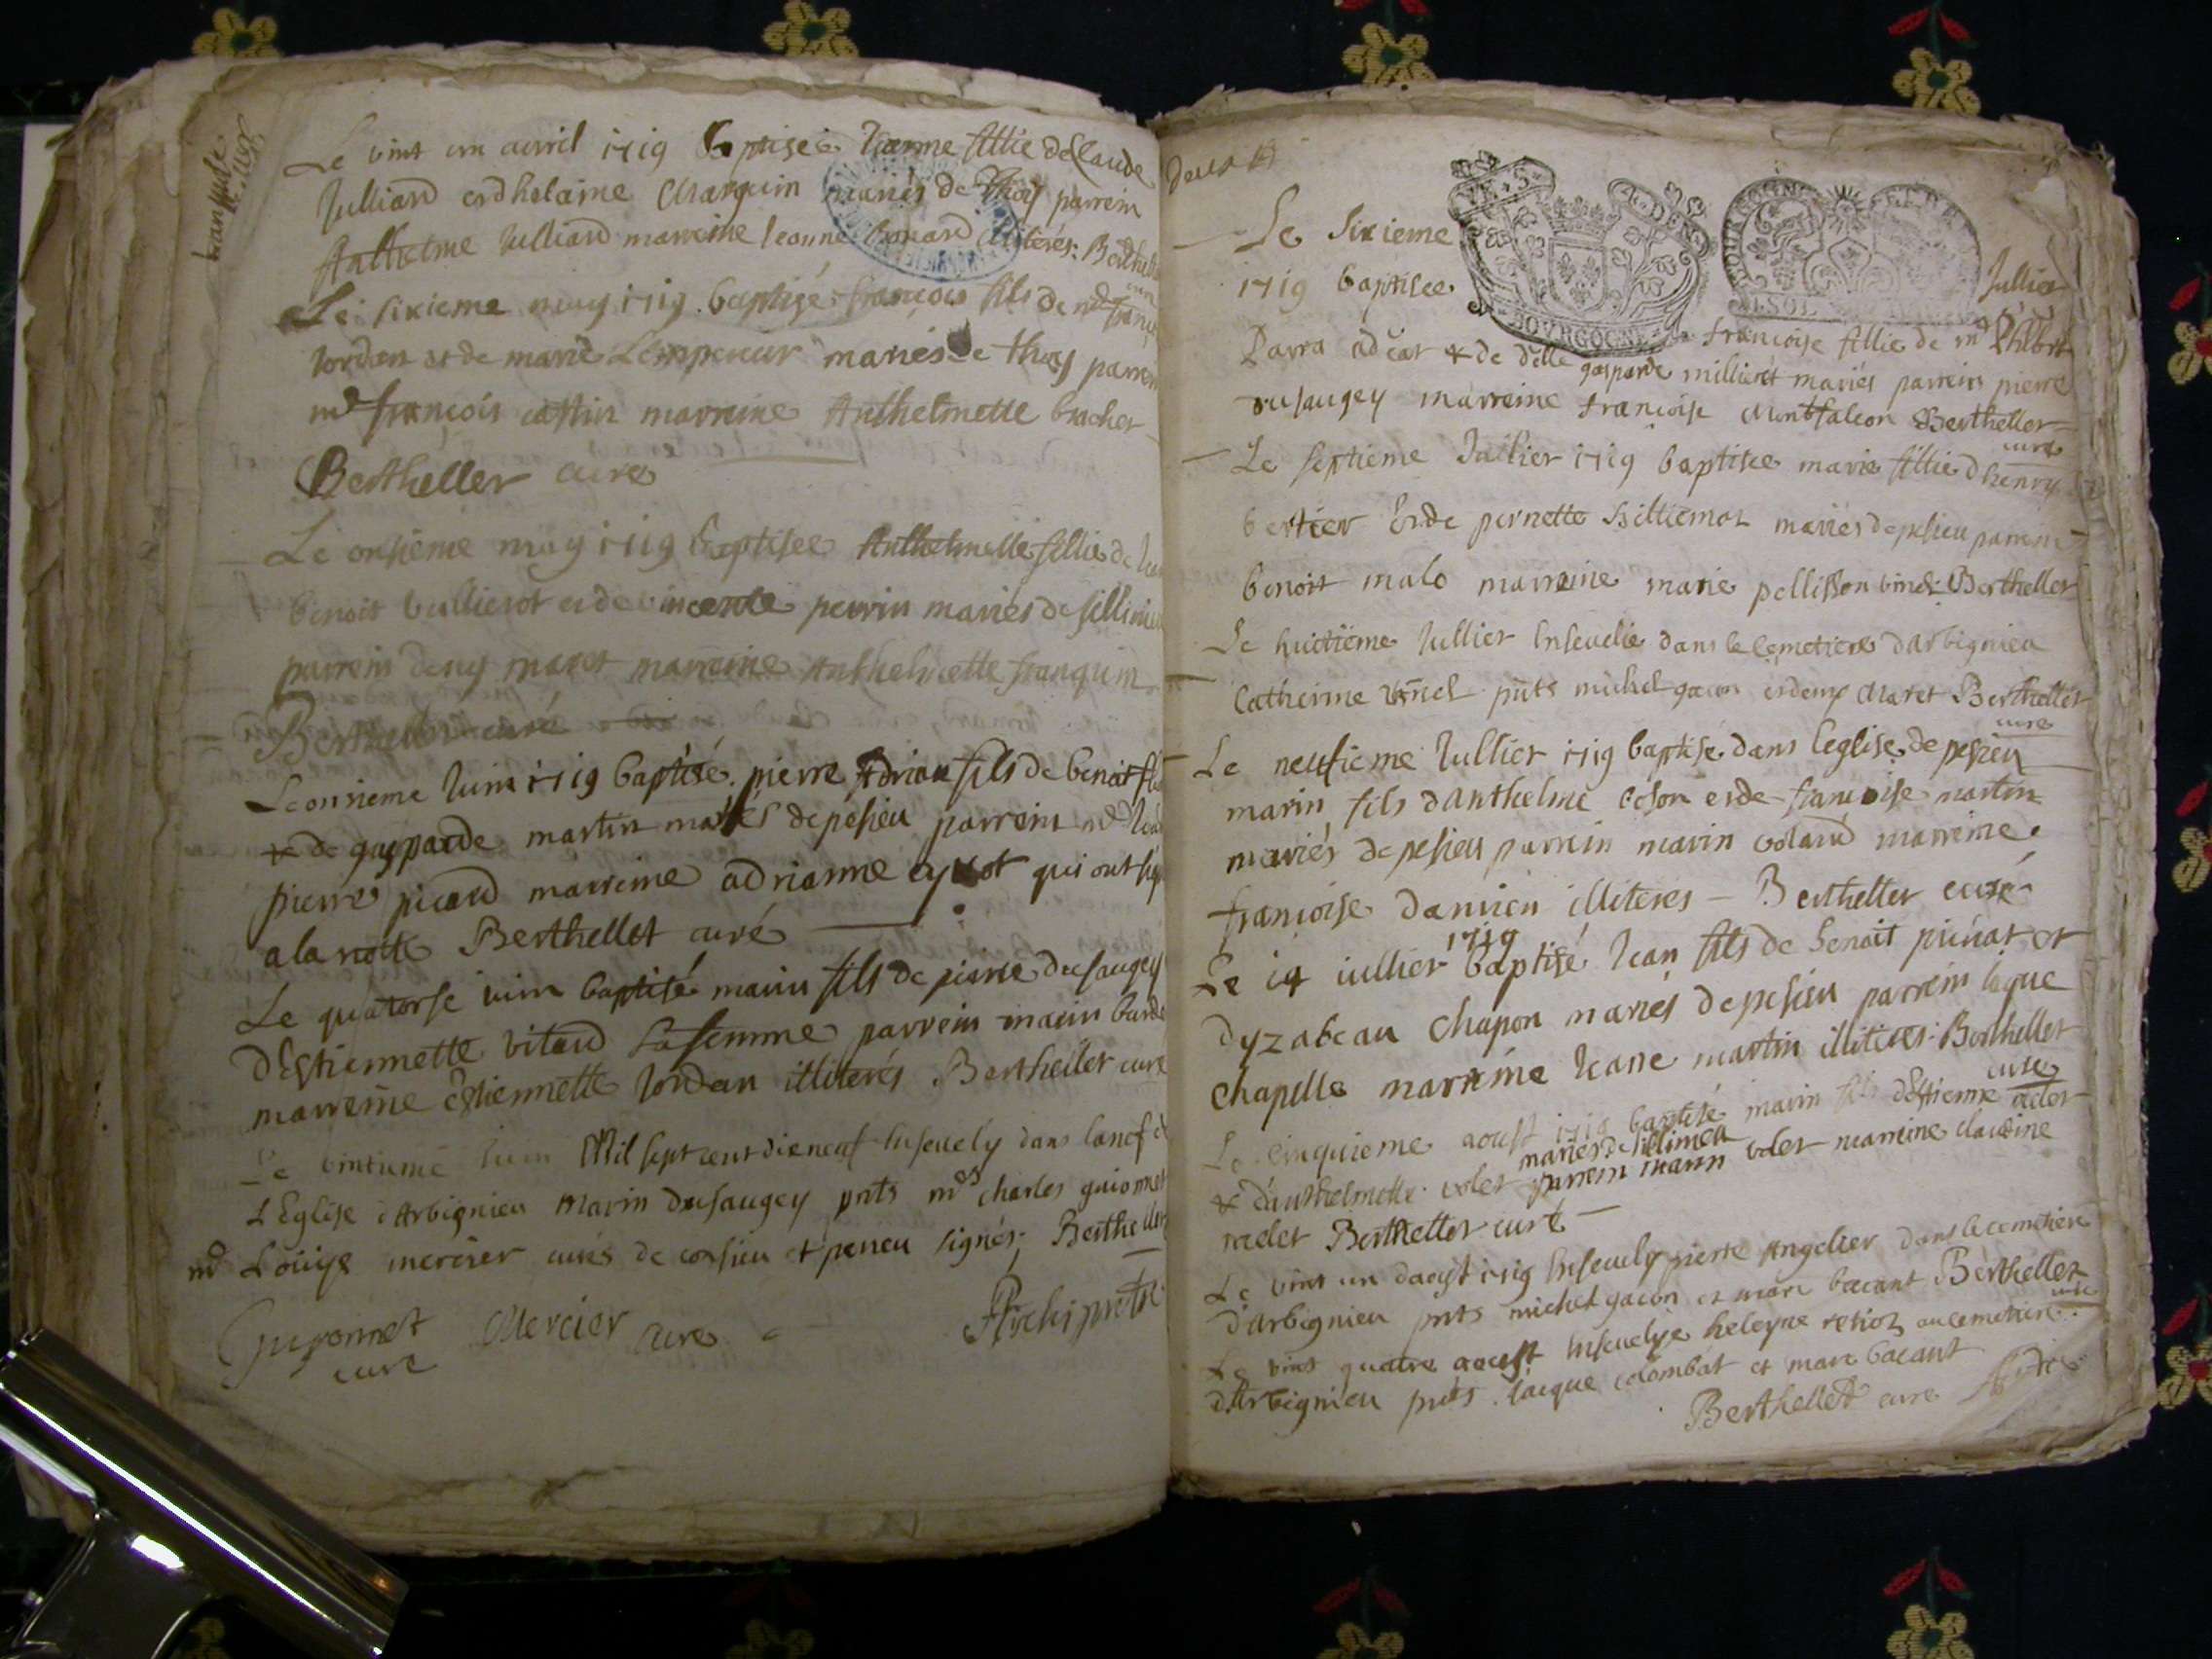 Le vint un avril 1719 Baptisée Jeanne fillie de Claude
Julliard et dhelaine Marquin mariés de thoy parrein
Anthelme Julliard marreine Jeanne illiterés: Berthellet
Le sixieme may 1719 baptisé françois fils de md françois
Jordan et de marie Lempereur mariés de thoy parrein
md françois marreine Anthelmette brachet
Berthellet curé
Le onsieme may 1719 baptisée Anthelmette fillie de
benoit vullierot et de vincente perrin mariés de sillinieu
parrein deny maret marreine Anthelmette franquin
Berthellet curé
Le onsieme Juin 1719 baptisé pierre Adrian fils de benoit
& de gasparde martin mariés de pesieu parrein md
pierre picard marreine adrianne qui ont
a la notte Berthellet curé
Le quatorse iuin baptisé marin fils de pierre dusaugey
d'Estiennette vitard sa femme parrein marin
marreine Estiennette Jordan illiterés Berthellet curé
Le vintieme iuin Mil sept cent dix neuf Insevely dans la nef de
L'Eglise d'Arbignieu Marin Dusaugey pnts mrs charles guionnet
mr Loüys mercier curés de consieu et peneu signés; Berthellet
Guyonnet Mercier curé Archiprètre
curé
deux s
Le sixieme Jullier
1719 baptisée françoise fillie de mr Philibert
Parra adcat & de dlle gasparde millieret mariés parrein pierre
dusaugey marreine françoise Montfalcon Berthellet
curé
Le septieme Jullier 1719 baptisée marie fillie dhenry
bertier et de pernette billiemot mariés de pesieu parrein
benoit malo marreine marie pellisson Berthellet
Le huictieme Jullier Insevelie dans le cemetiere d'Arbignieu
Catherine pnts michel gacon et deny Maret Berthellet
curé
Le neufieme Jullier 1719 baptisé dans leglise de pesieu
marin fils d'Anthelme et de françoise martin
mariés de pesieu parrein marin volard marreine
françoise damien illiterés - Berthellet curé
Le 14 iullier 1719 baptisé Jean fils de benoit et
dyzabeau chapon mariés de pesieu parrein iaque
chapelle marreine Jeane martin illiterés. Berthellet
curé
Le cinquieme aoust 1719 baptisé marin fils d'Estienne
& d'anthelmette volet mariés de sillinieu
parrein marin volet marreine claudine
Berthellet curé
Le vint un daoust 1719 Insevely pierre Angelier dans le cemetiere
d'Arbignieu pnts michel gacon et marc bacant Berthellet
curé
Le vint quatre aoust Insevelye heleyne au cemetiere
d'Arbignieu pnts. iacque colombat et marc bacant
Berthellet curé